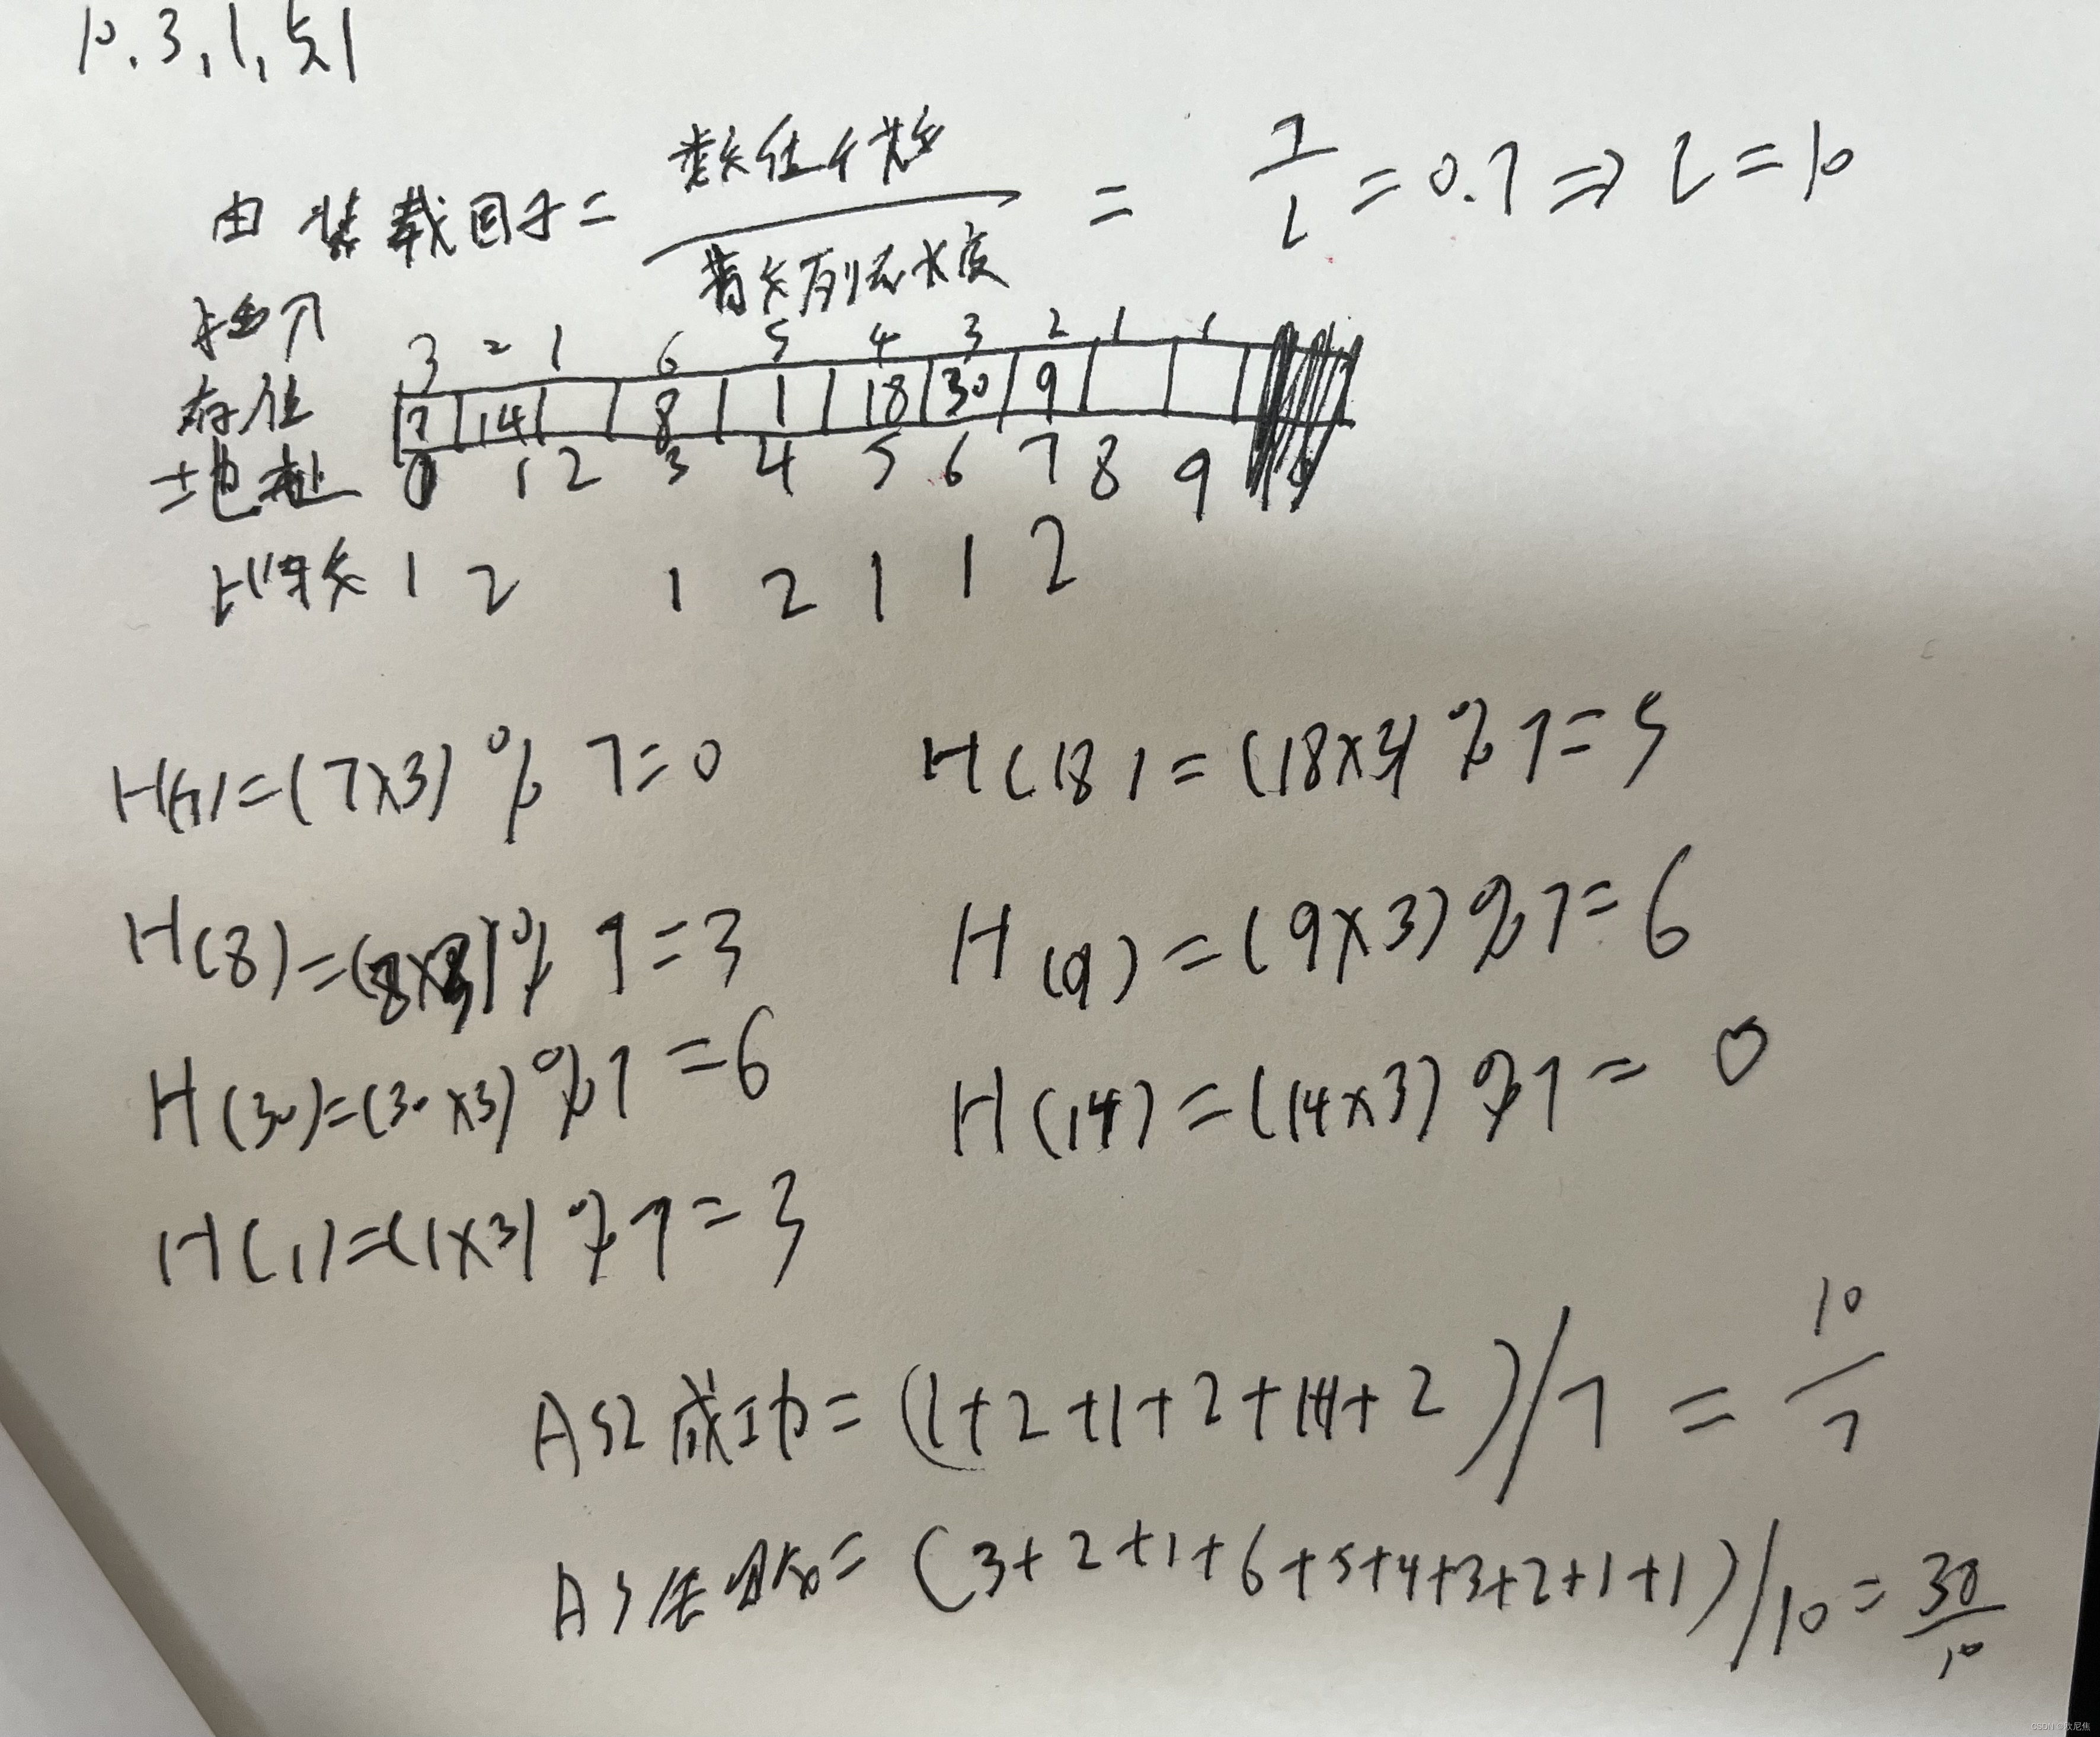 10.3,1,54
由装载因子=数值个数/散列表长度=7/L=0.7⇒L=10
3 2 1 6 5 4 3 2 1 1
存值 7 14 8 1 18 30 9
地址 0 1 2 3 4 5 6 7 8 9
比较次 1 2 1 2 1 1 2
H(7)=(7×3)%7=0 H(18)=(18×3)%7=5
H(8)=(8×3)%7=3 H(9)=(9×3)%7=6
H(30)=(30×3)%7=6 H(14)=(14×3)%7=0
H(1)=(1×3)%7=3
ASL成功=(1+2+1+2+1+1+2)/7=10/7
=(3+2+1+6+5+4+3+2+1+1)/10=30/10